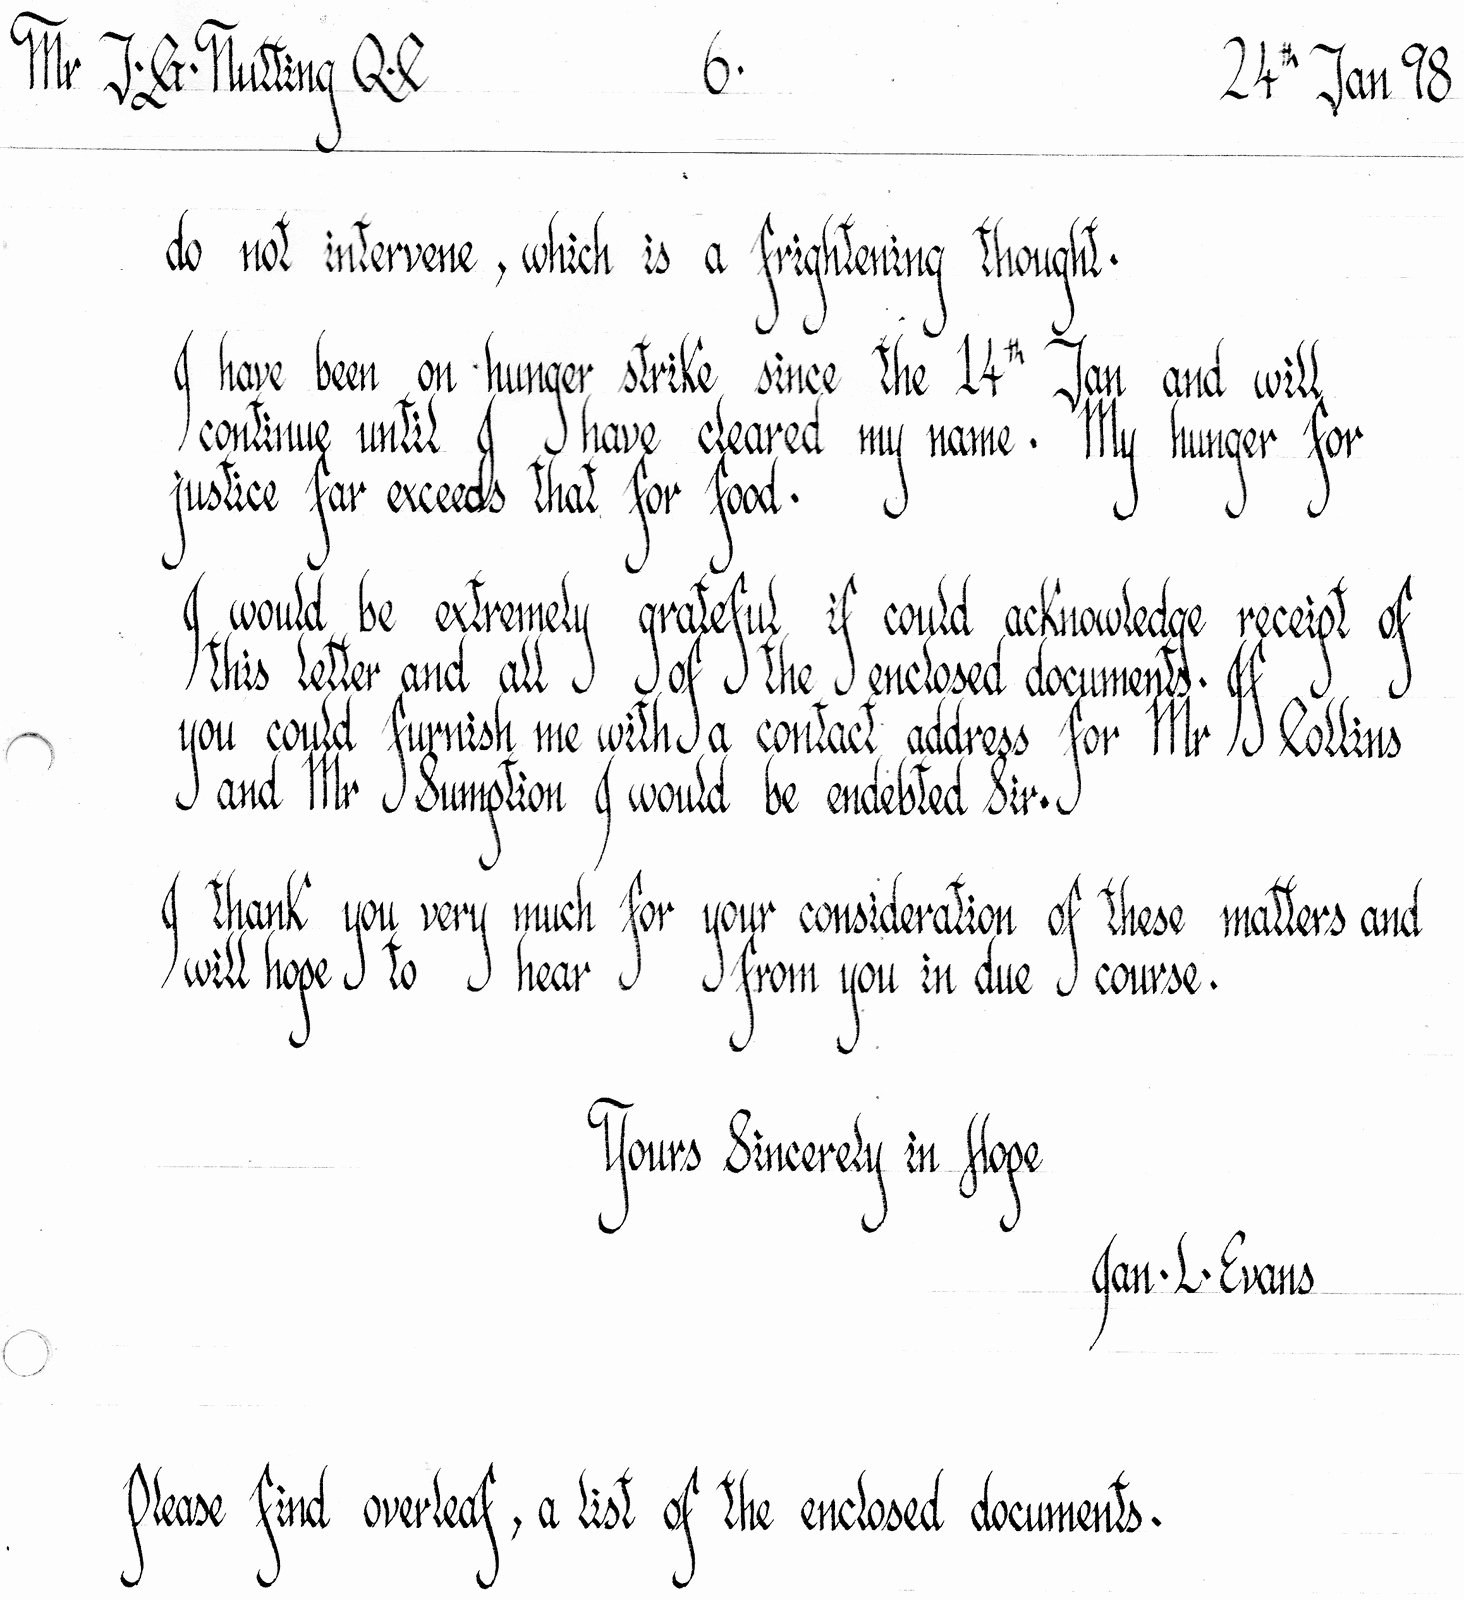 Mr J.G. Nutting Q.C 6. 24th Jan 98
do not intervene, which is a frightening thought.
I have been on hunger strike since the 14th Jan and will
continue until I have cleared my name. My hunger for
justice far exceeds that for food.
I would be extremely grateful if could acknowledge receipt of
this letter and all of the enclosed documents. If
you could furnish me with a contact address for Mr Collins
and Mr Sumption I would be endebted Sir.
I thank you very much for your consideration of these matters and
will hope to hear from you in due course.
Yours Sincerely in Hope
Ian. L. Evans
Please find overleaf, a list of the enclosed documents.